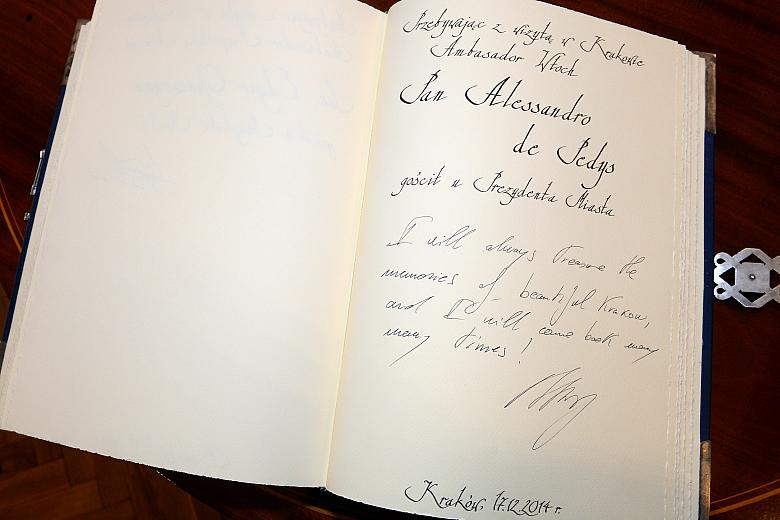 Przebywając z wizytą w Krakowie
Ambasador Włoch
Pan Alessandro
de Pedys
gościł u Prezydenta Miasta
I will always treasure the
memories of beautiful Krakow,
and I will come back many
many times!
Kraków, 17.12.2014 r.